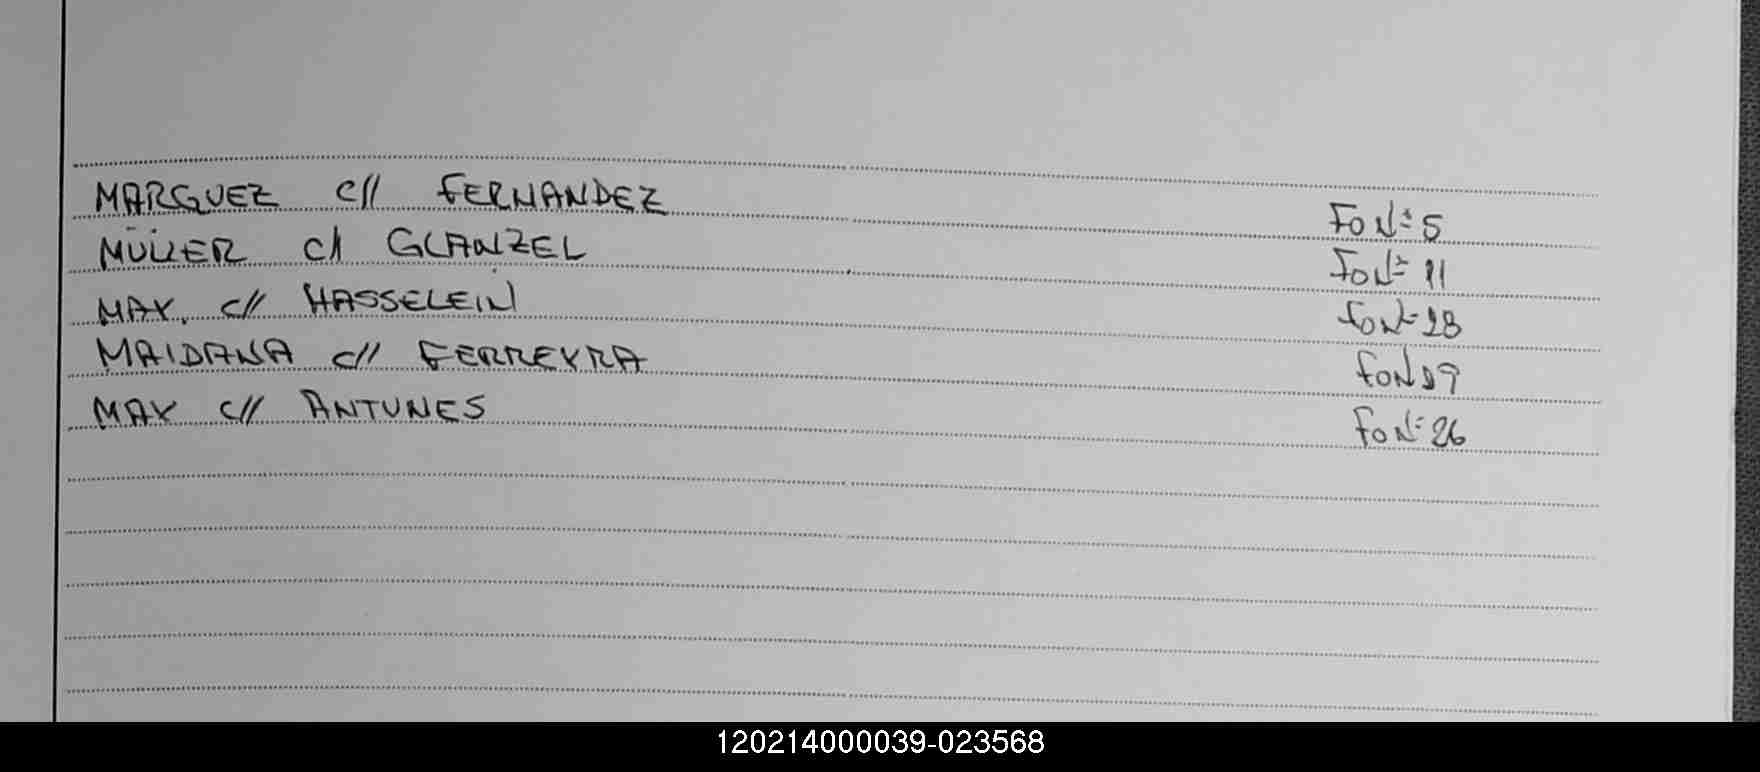 MARQUEZ c// FERNANDEZ Fo Nº 5
MÜLLER c/ GLANZEL Fo Nº 11
MAX. c// HASSELEIN Fo Nº 18
MAIDANA c// FERREYRA Fo N 19
MAX c// ANTUNES Fo Nº 26
120214000039-023568